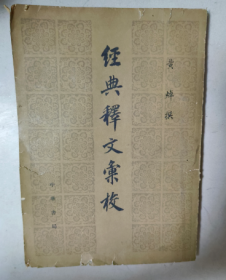 黄焯撰
經典釋文彙校
中華書局